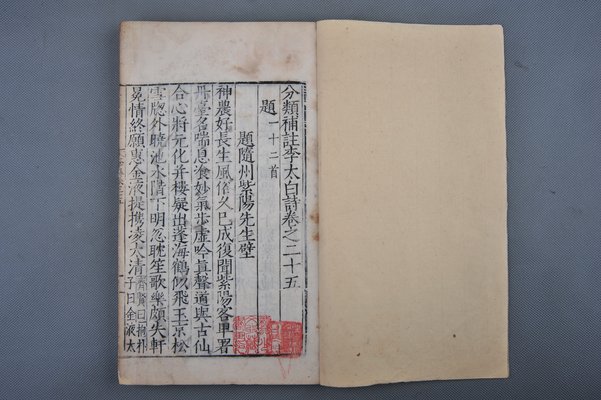 分類補註李太白詩卷之二十五
題一十二首
題隨州紫陽先生壁
神農好長生風俗久已成復聞紫陽客早署
丹臺名喘息飡妙氣步虛吟眞聲道與古仙
合心將元化并樓疑出蓬海鶴似飛玉京松
雪牕外曉池水階下明忽耽笙歌樂頗失軒
冕情終願惠金液提攜凌太清齊賢曰抱朴子曰金液太